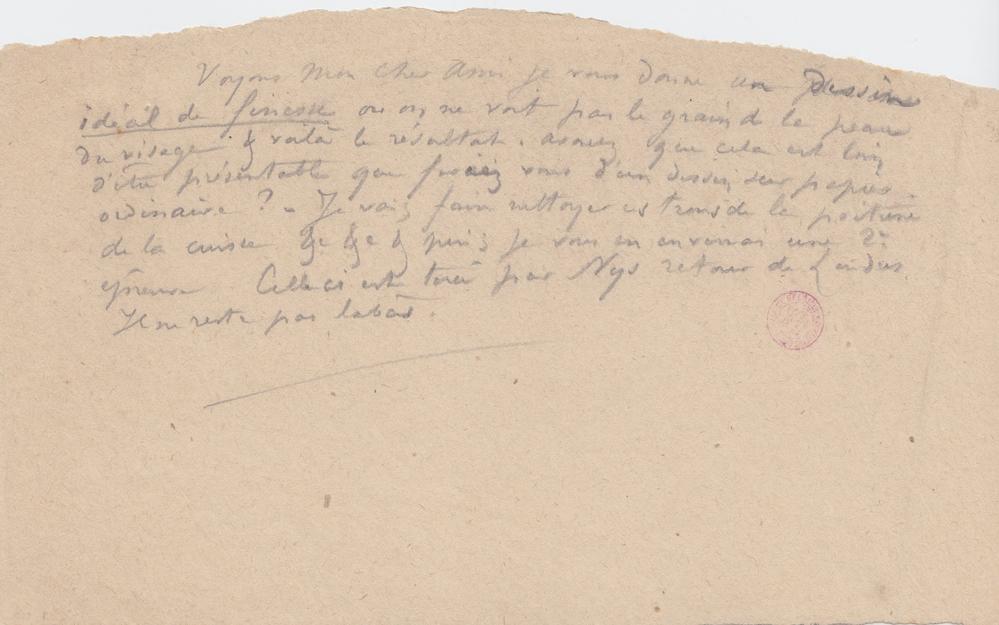 Voyons Mon cher Ami je vous donne un Dessin
idéal de finesse ou on ne voit pas le grain de la peau
du visage & voilà le résultat. avouez que cela est loin
d'être présentable que feriez vous d'un dessin sur papier
ordinaire ? - Je vais faire nettoyer les trous de la poitrine
de la cuisse &c &c & puis je vous en enverrai une 2e
épreuve Celle ci est tirée par Nys retour de Londres
Il ne reste pas labas.